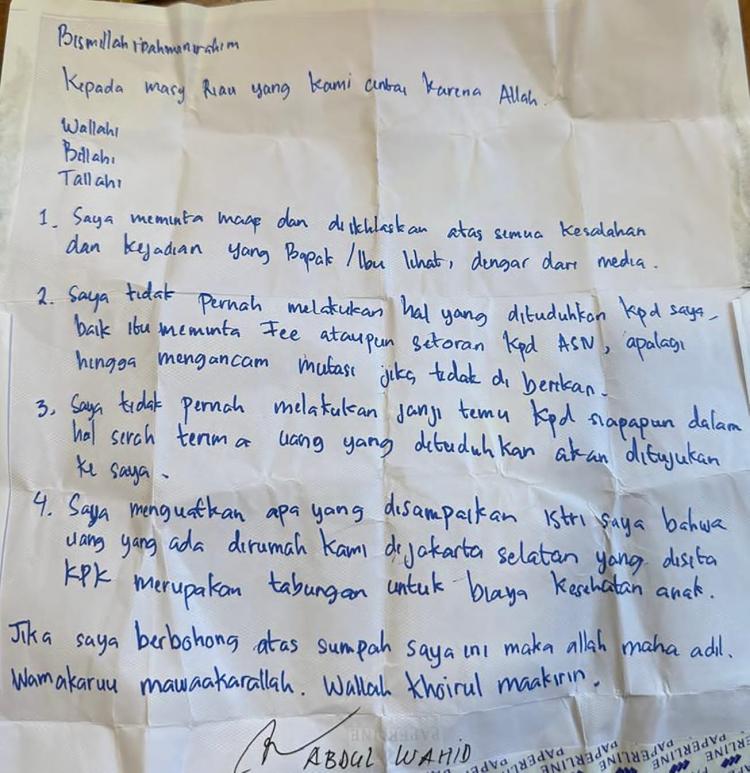 Bismillahirahmanirahim
Kepada masy Riau yang kami cintai karena Allah.
Wallahi
Billahi
Tallahi
1. Saya meminta maap dan diikhlaskan atas semua kesalahan
dan kejadian yang Bapak/Ibu lihat, dengar dari media.
2. Saya tidak pernah melakukan hal yang dituduhkan kpd saya,
baik itu meminta Fee ataupun setoran kpd ASN, apalagi
hingga mengancam mutasi jika tidak di berikan.
3. Saya tidak pernah melakukan janji temu kpd siapapun dalam
hal serah terima uang yang dituduhkan akan ditujukan
ke saya.
4. Saya menguatkan apa yang disampaikan istri saya bahwa
uang yang ada dirumah kami dijakarta selatan yang disita
KPK merupakan tabungan untuk biaya kesehatan anak.
Jika saya berbohong atas sumpah saya ini maka allah maha adil.
Wamakaruu mawaakarallah. Wallah khoirul maakirin.
ABDUL WAHID
PAPERLINE
PAPERLINE PAPERLINE PAPERLINE PAPERLINE